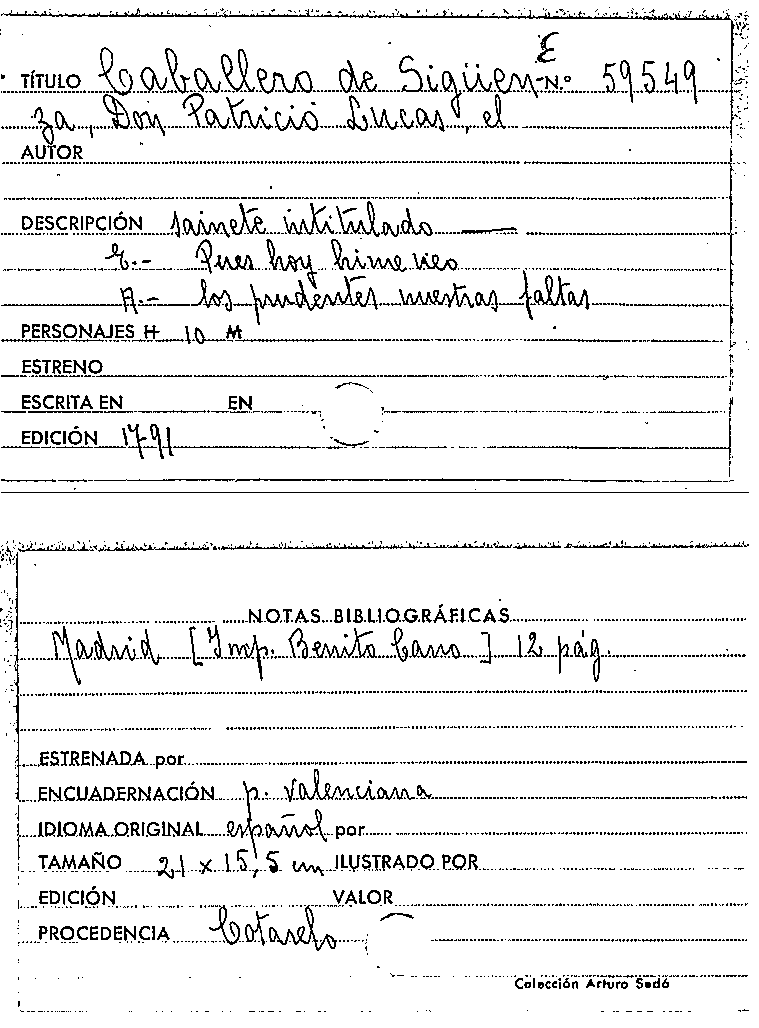 E
TÍTULO Caballero de Sigüen- N.º 59549
za, Don Patricio Lucas, el
AUTOR
DESCRIPCIÓN Sainete intitulado ——
E.- Pues hoy himeneo
A.- los prudentes nuestras faltas
PERSONAJES H 10 M
ESTRENO
ESCRITA EN EN
EDICIÓN 1791
NOTAS BIBLIOGRÁFICAS
Madrid [Imp. Benito Cano] 12 pág.
ESTRENADA por
ENCUADERNACIÓN p. valenciana
IDIOMA ORIGINAL español por
TAMAÑO 21 x 15,5 cm ILUSTRADO POR
EDICIÓN VALOR
PROCEDENCIA Cotarelo
Colección Arturo Sedó